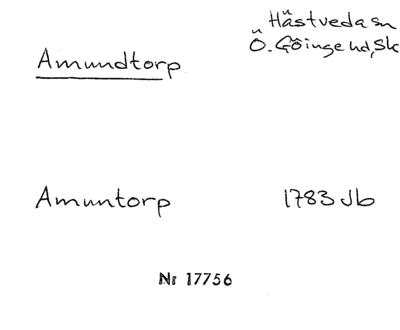 Hästveda sn
Amundtorp
Ö. Göinge hd, Sk
Amuntorp 1783 Jb
Nr 17756